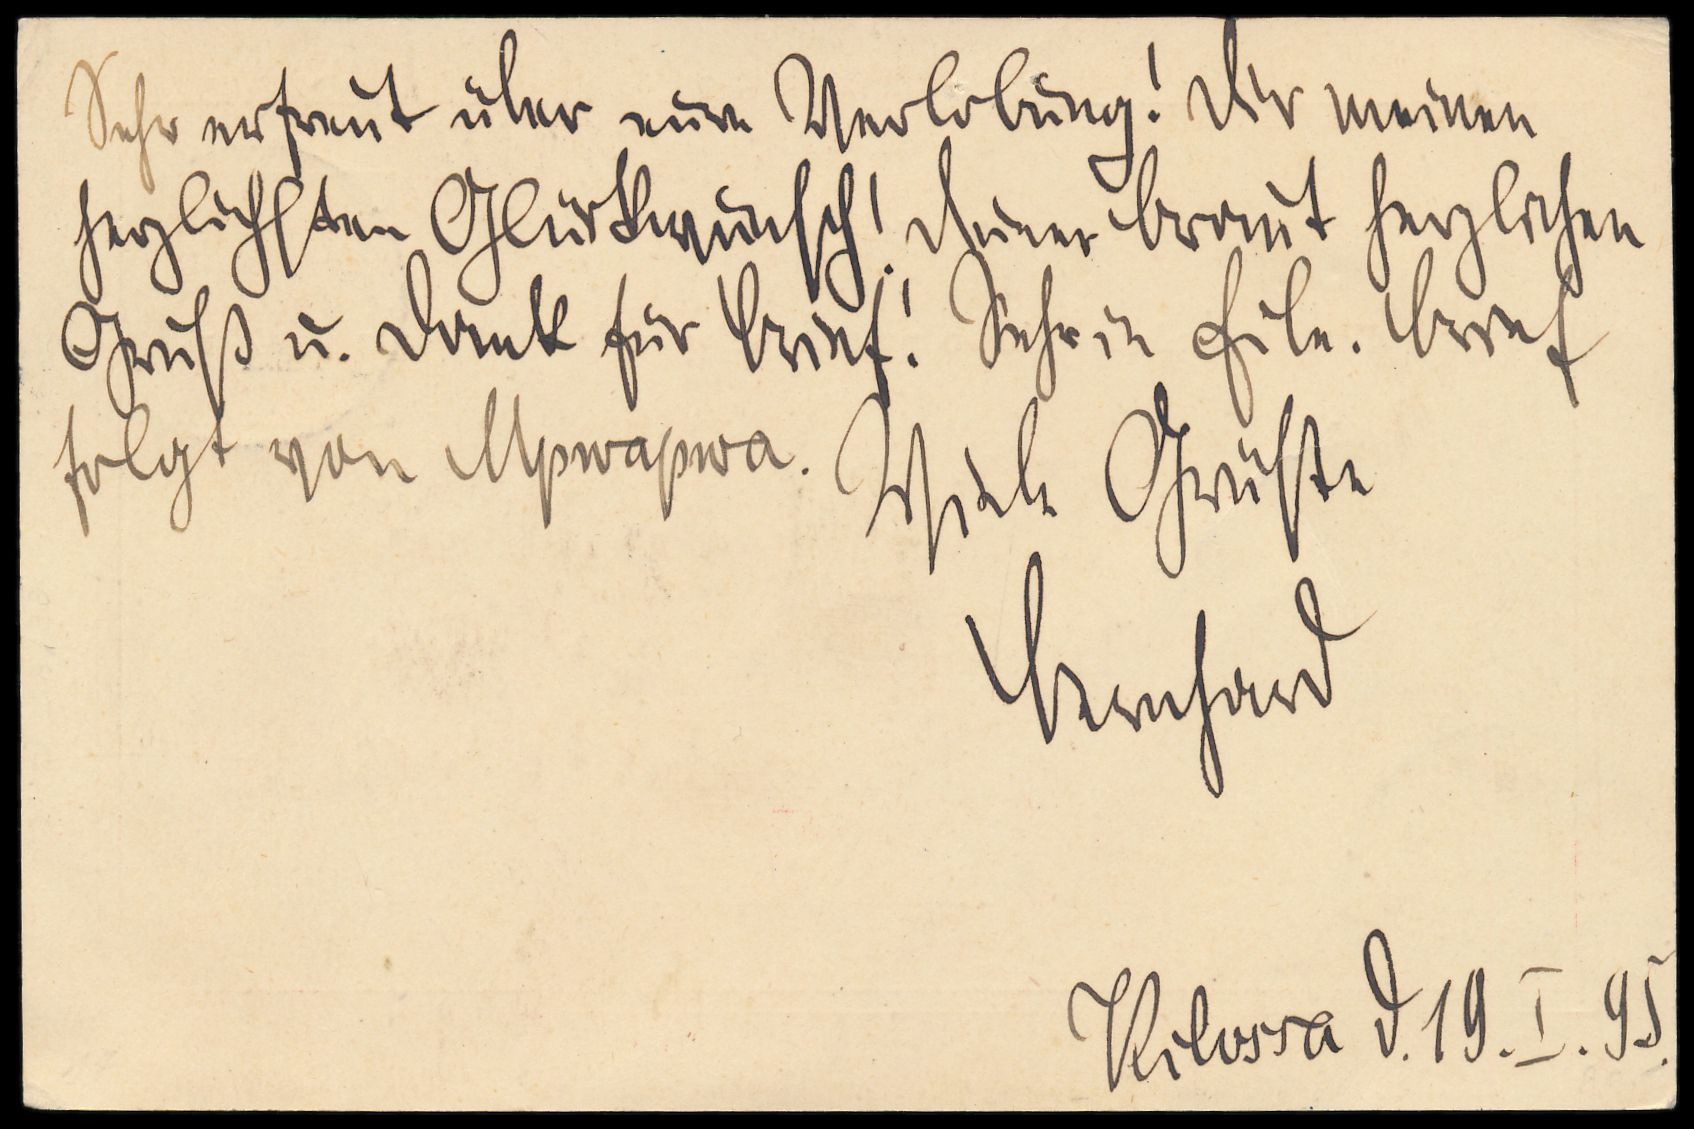 Sehr erfreut über eure Verlobung! Dir meinen
herzlichsten Glückwunsch! Deiner Braut herzlichen
Gruß u. Dank für Brief! Sehr in Eile. Brief
folgt von Mpwapwa. Viele Grüße
Bernhard
Kilossa d. 19. I. 95.